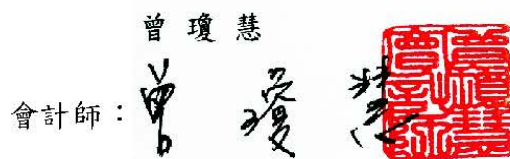 曾瓊慧
會計師：曾瓊慧
曾瓊慧會計師